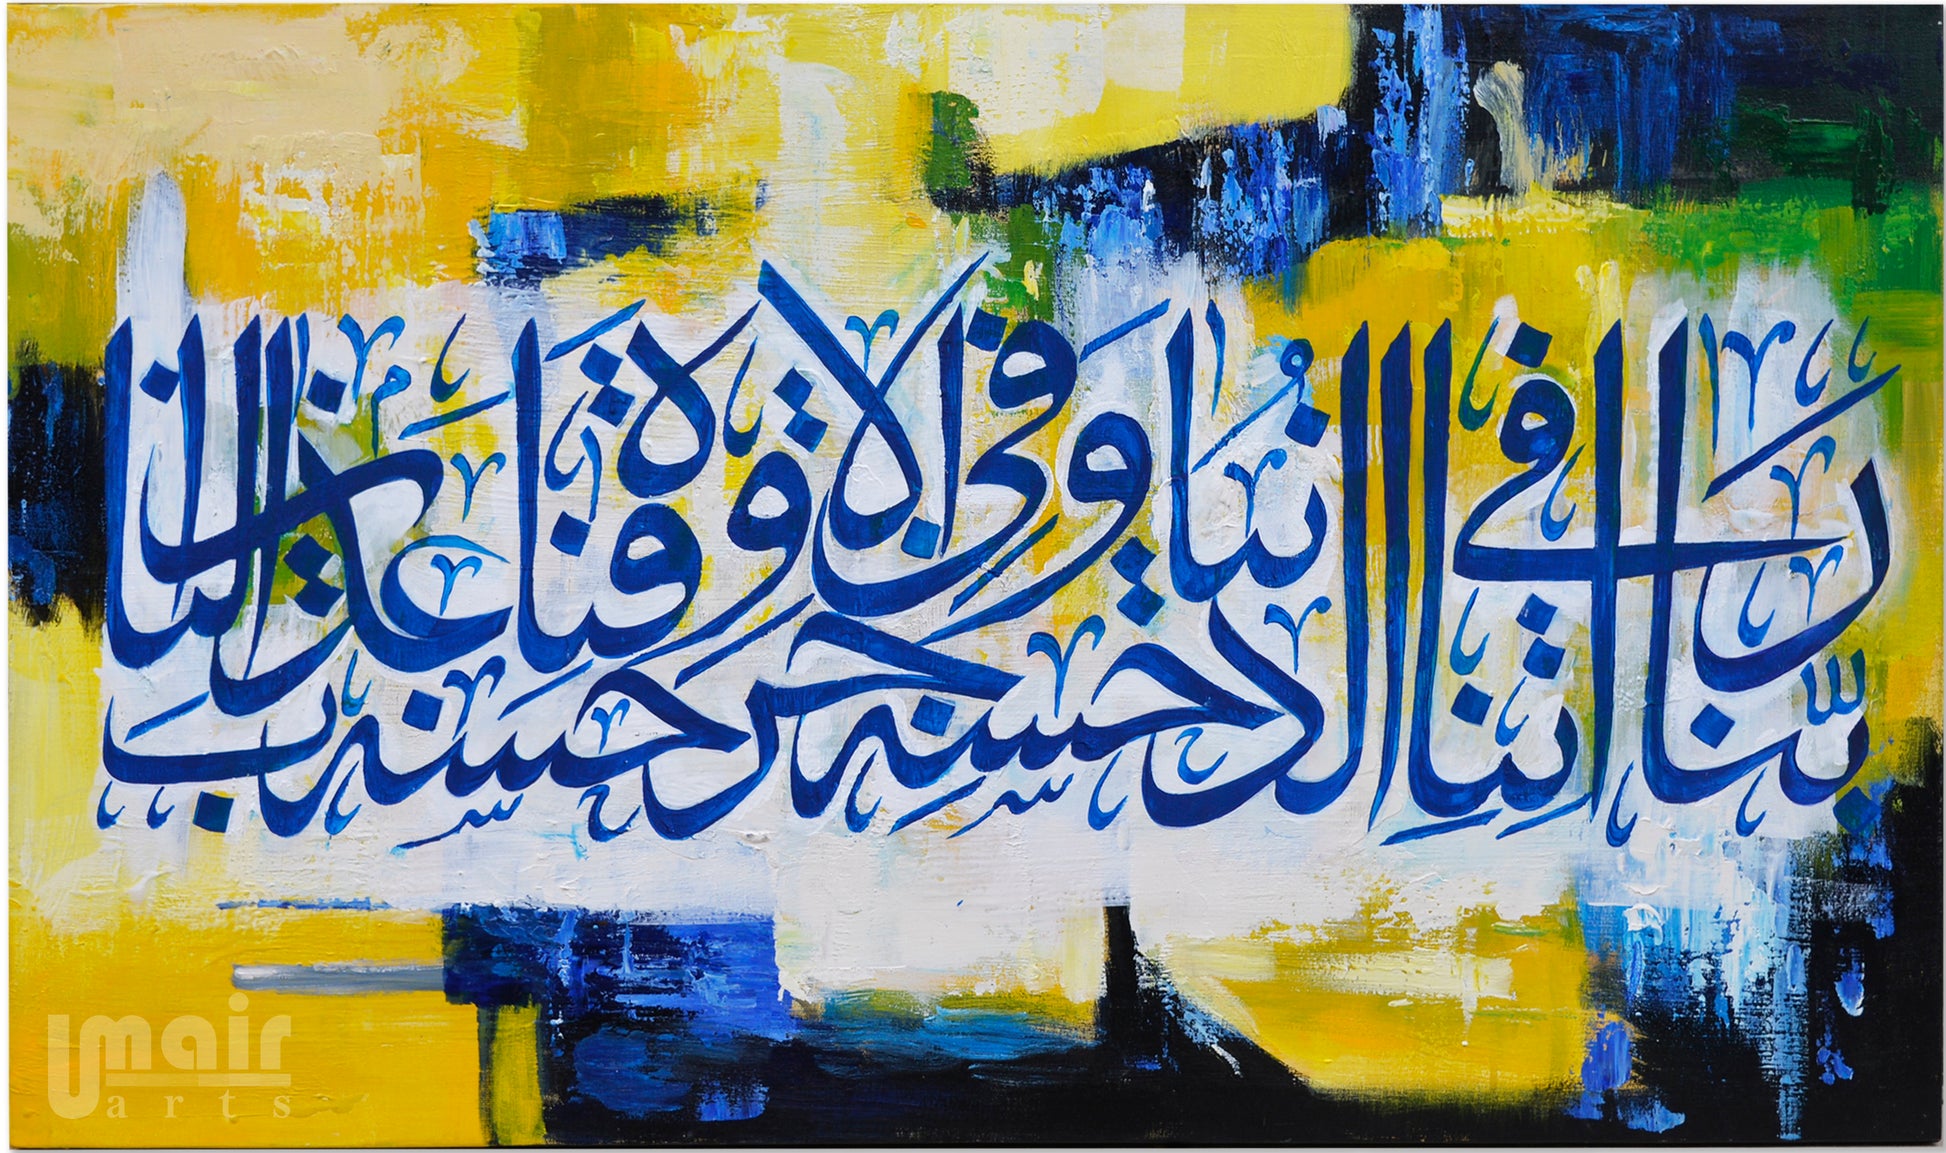 ربنا اتنا فى الدنيا حسنة وفى الاخرة حسنة وقنا عذاب النار
Umair
arts